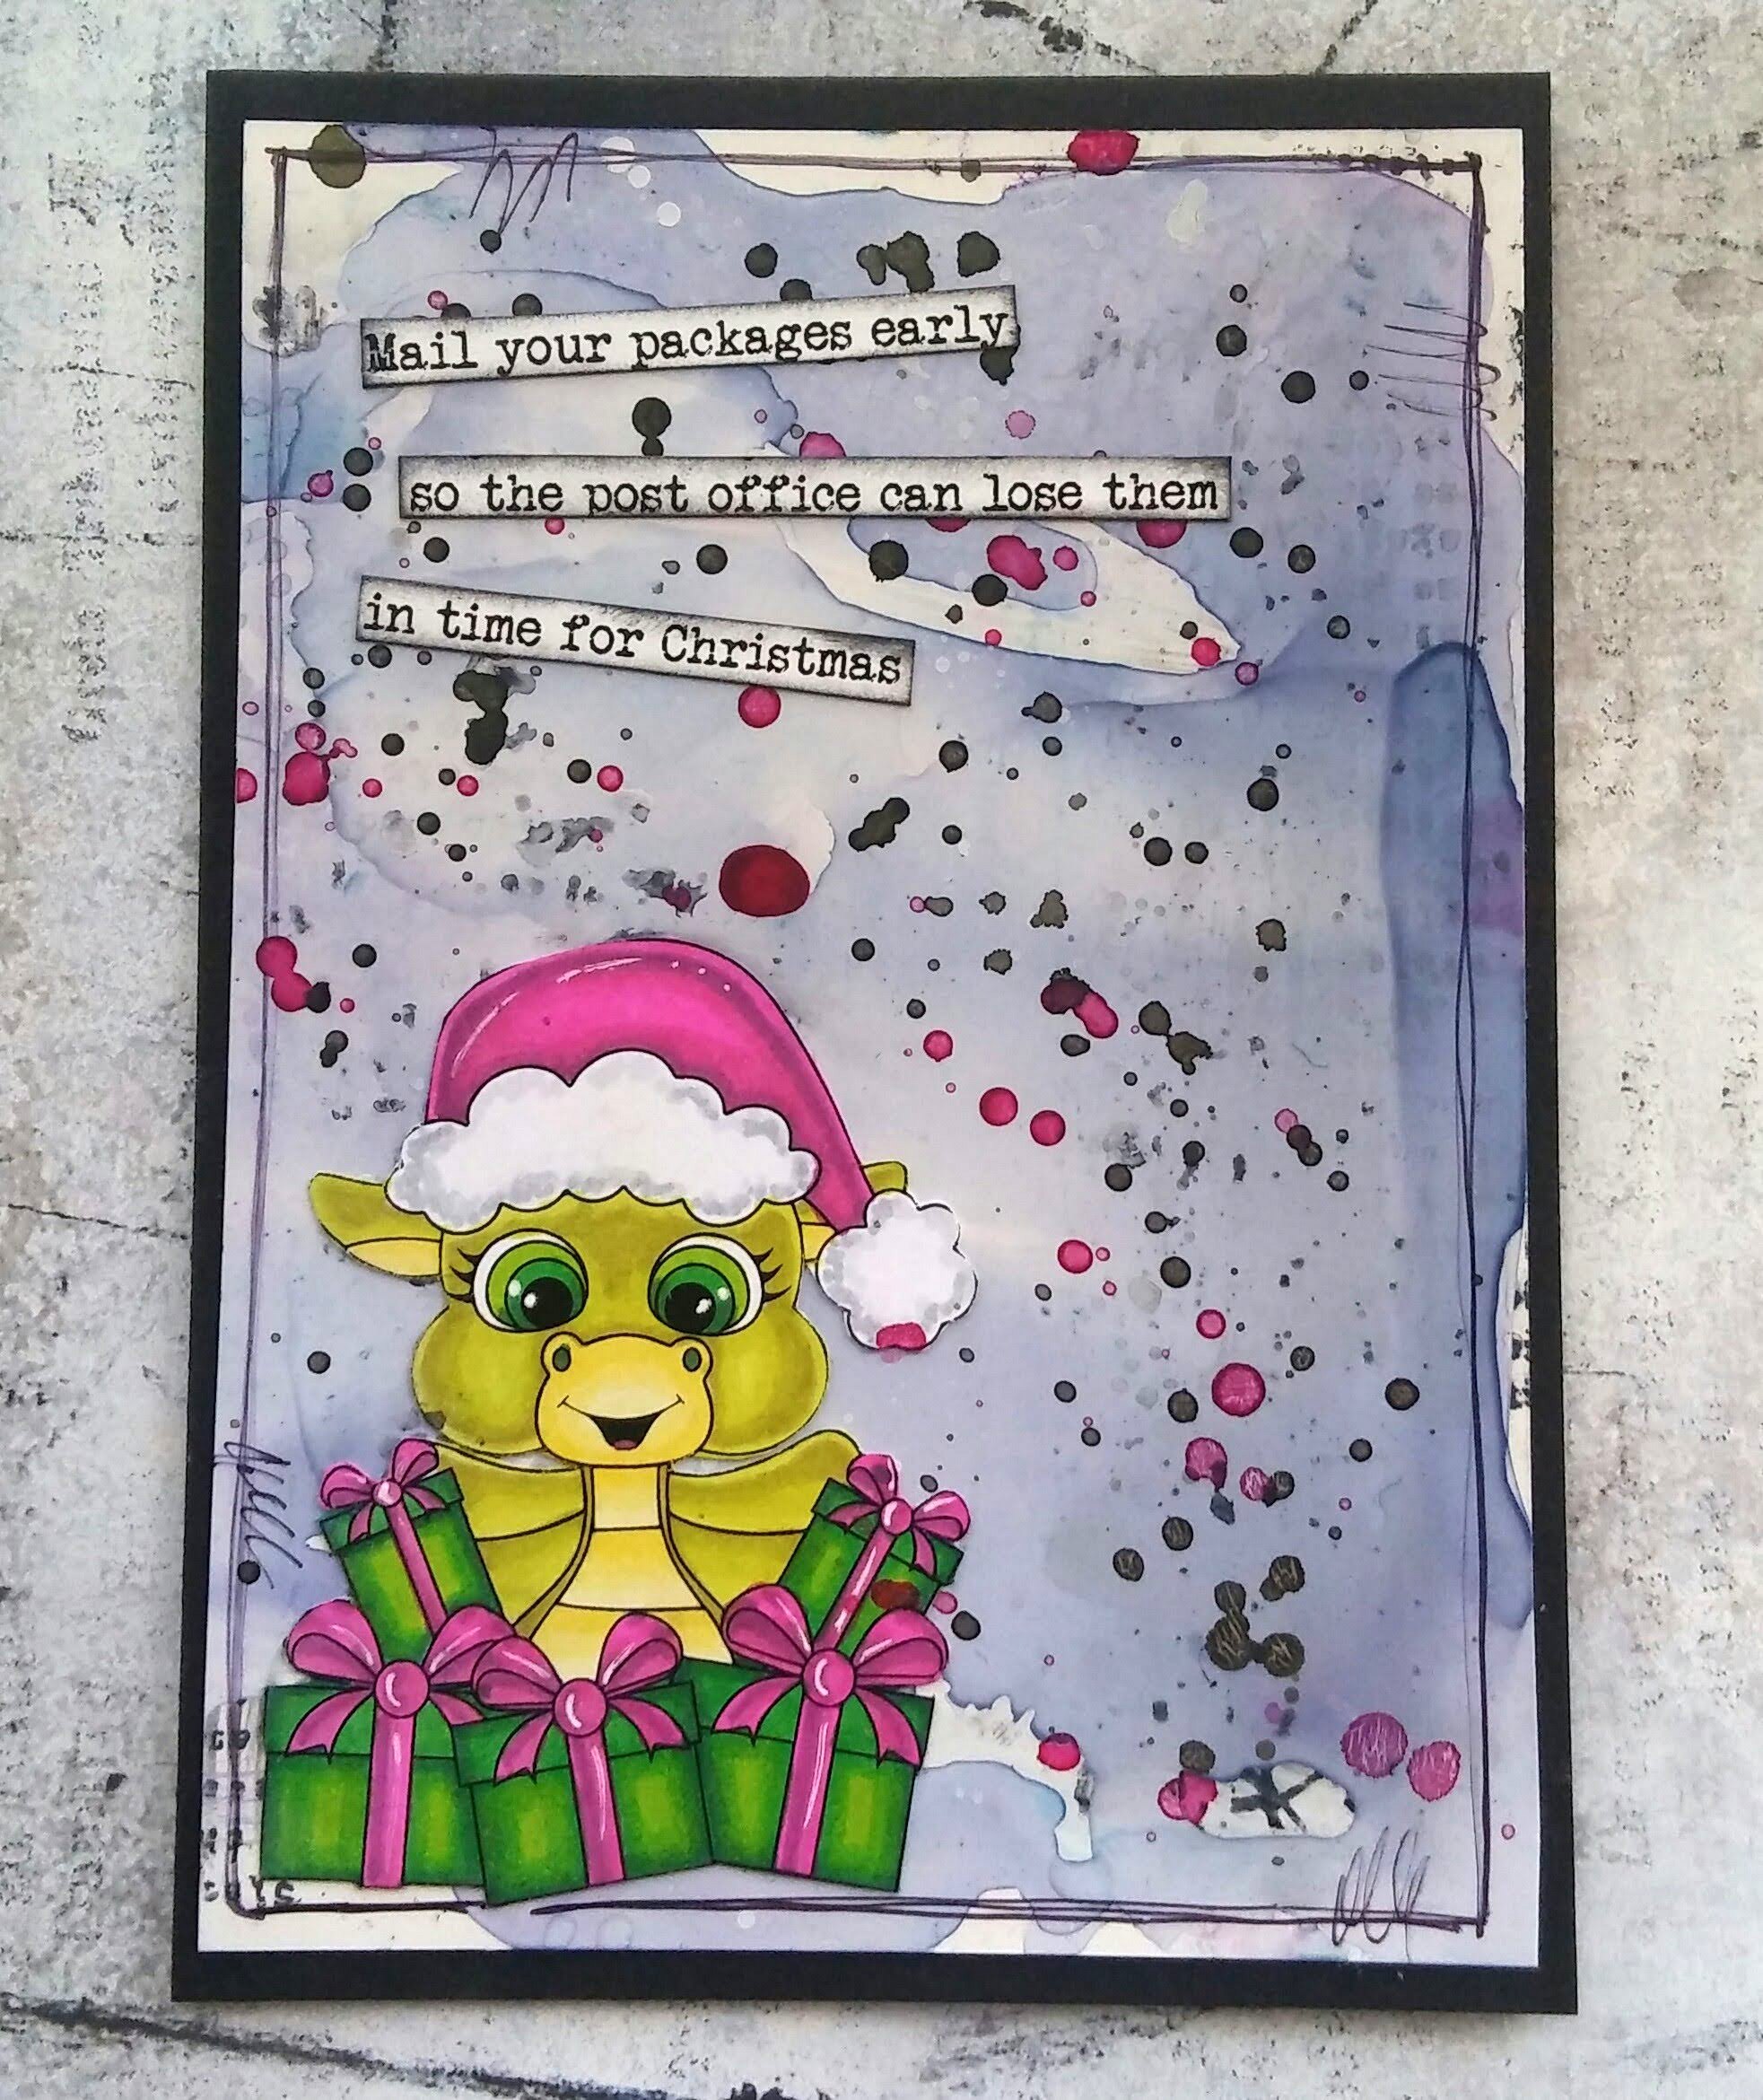 Mail your packages early
so the post office can lose them
in time for Christmas